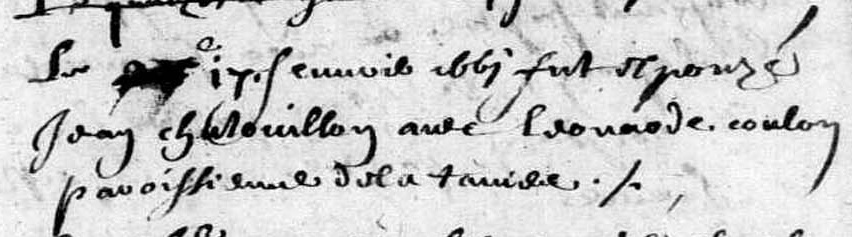 Le 17e fevrier 1661 fut espouzé
Jean chatouillon avec Leonarde coulon
paroissienne de la taniere ./.